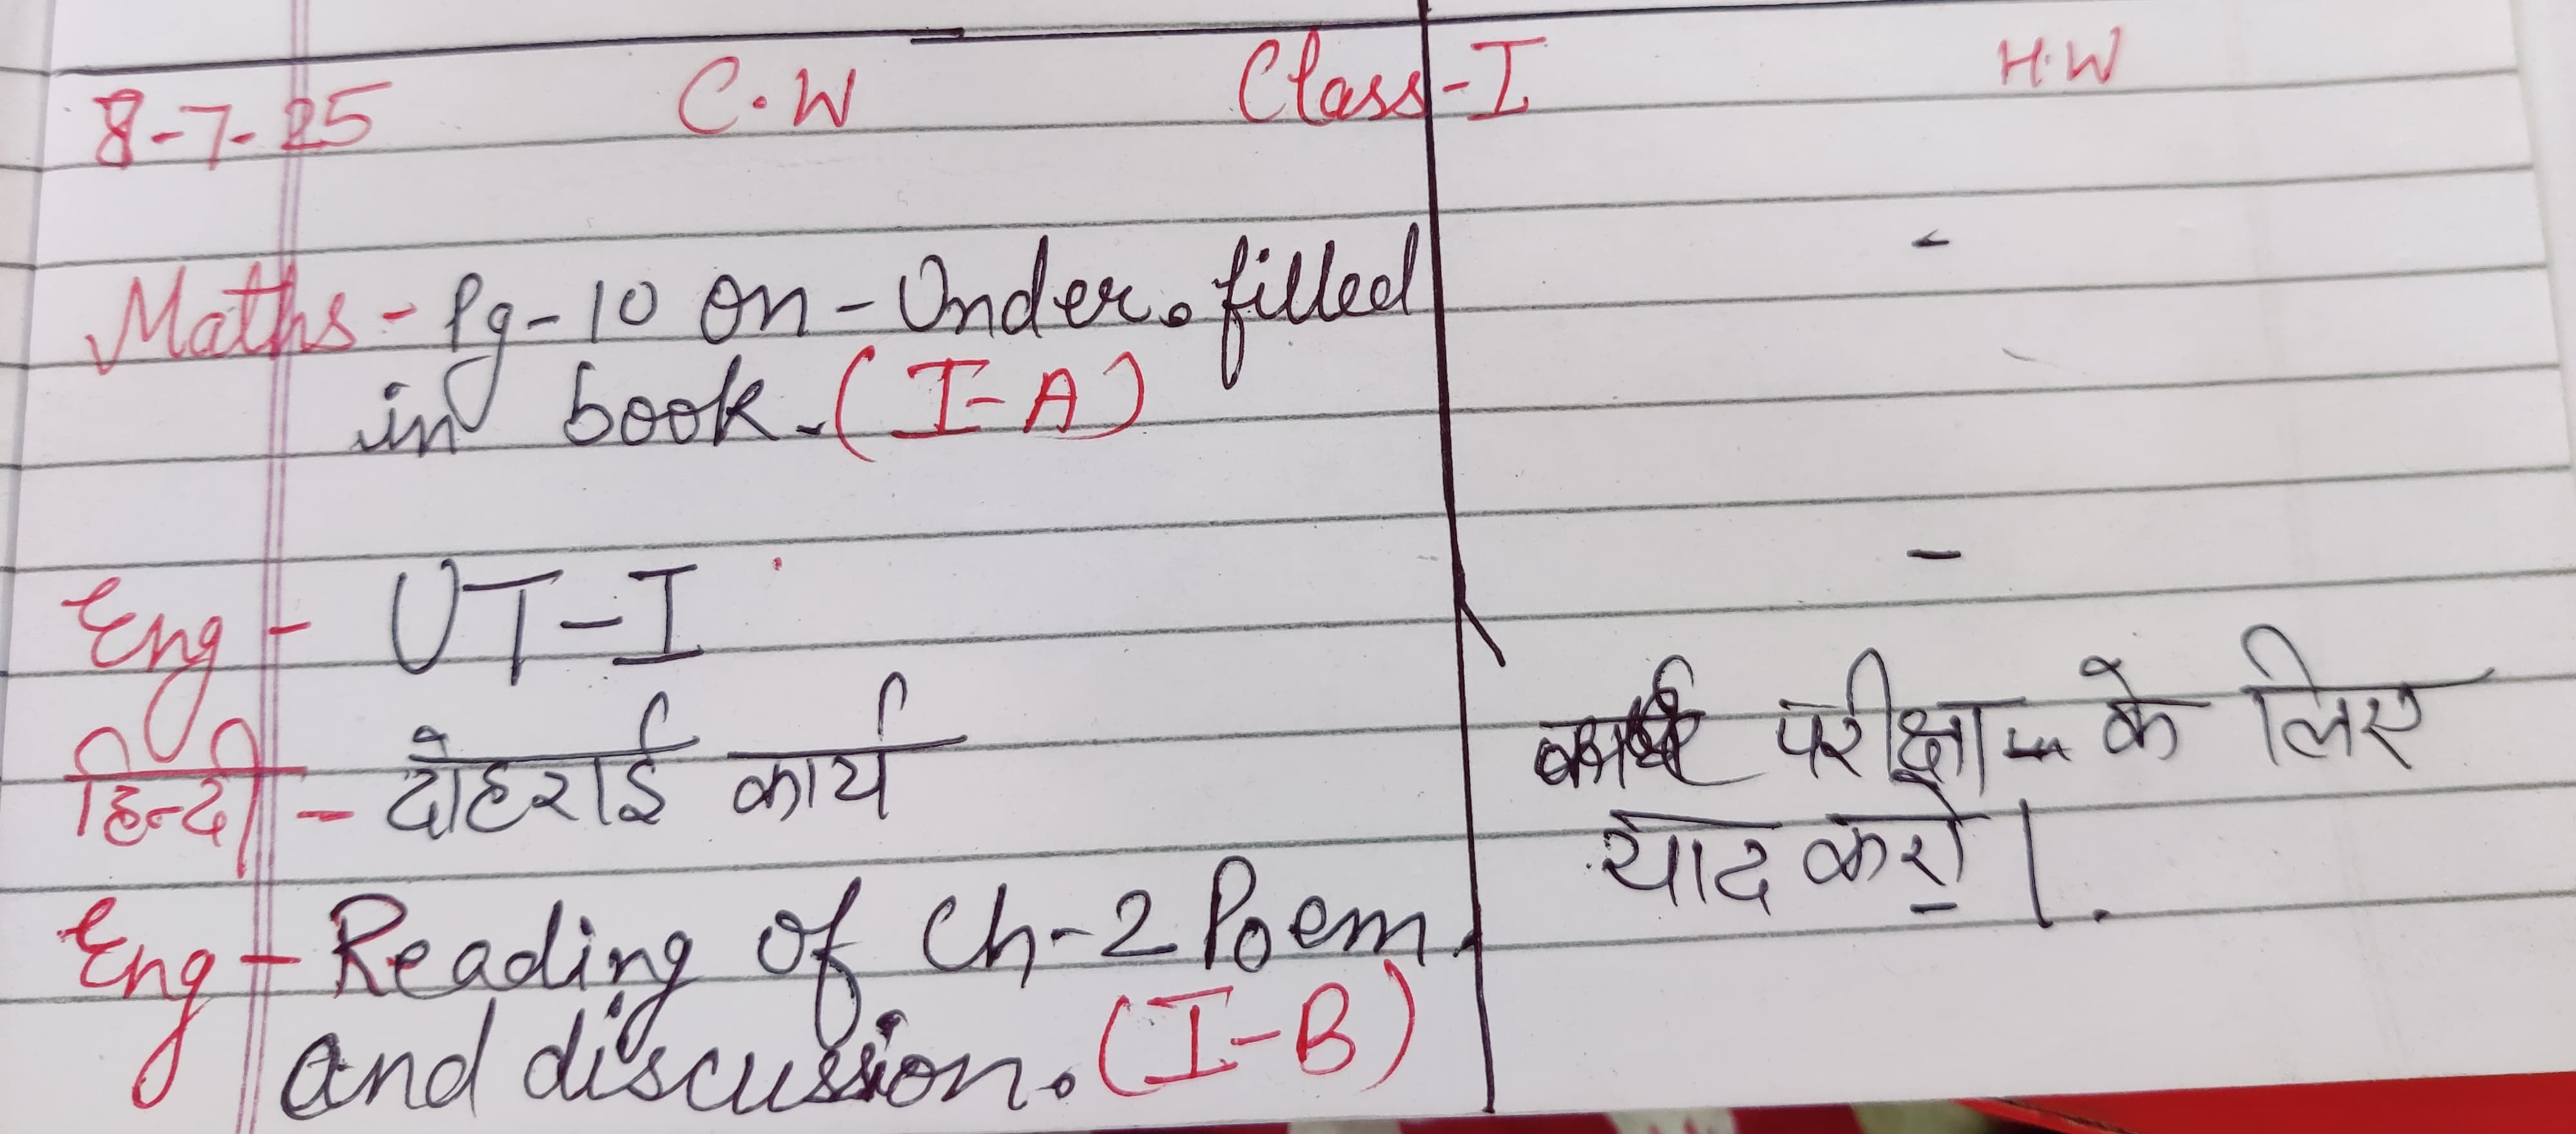 8-7-25 C.W Class-I H.W
Maths - Pg-10 On-Under. filled -
in book. (I-A)
Eng - UT-I -
हिन्दी - दोहराई कार्य परीक्षा - के लिए
याद करो।
Eng - Reading of Ch-2 Poem.
and discussion. (I-B)